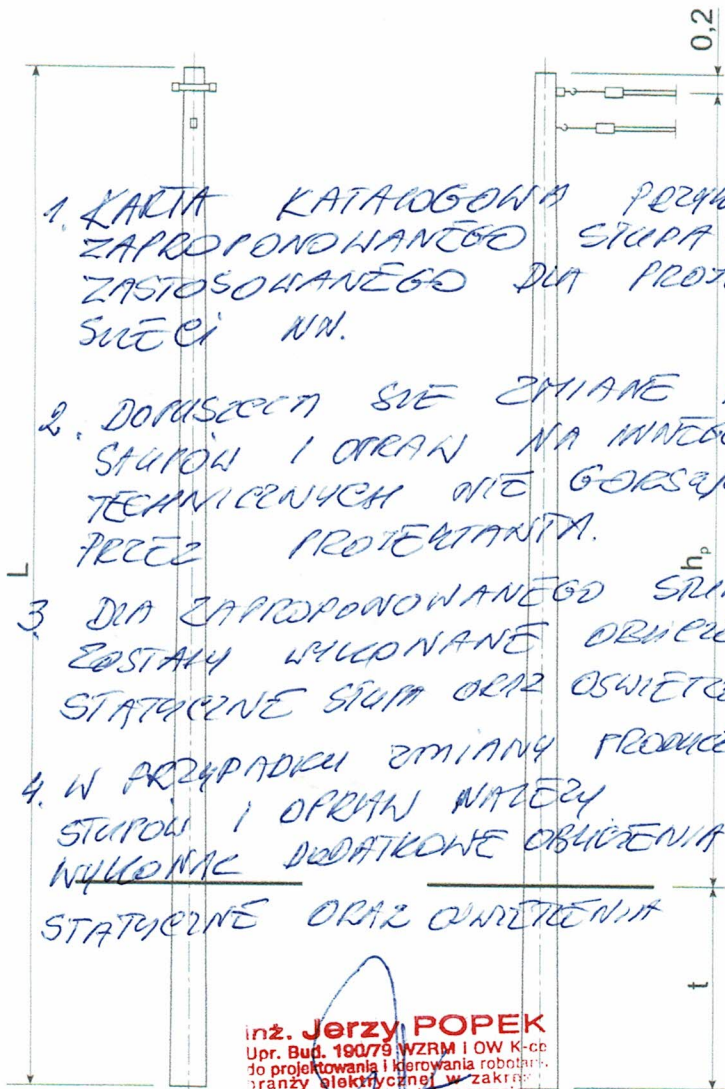 0,2
1. KARTA KATALOGOWA
ZAPROPONOWANEGO SŁUPA
ZASTOSOWANEGO DLA
SIECI NN.
2. DOPUSZCZA SIE ZMIANE
SŁUPÓW I OPRAW NA INNEGO
TECHNICZNYCH NIE
PRZEZ PROJEKTANTA.
L
hp
3 DLA ZAPROPONOWANEGO
ZOSTAŁY WYKONANE
STATYCZNE SŁUPA ORAZ
4. W PRZYPADKU ZMIANY
SŁUPÓW I OPRAW NALEŻY
WYKONAC DODATKOWE OBLICZENIA
STATYCZNE ORAZ OSWIETLENIA
t
inż. Jerzy POPEK
Upr. Bud. 190/79 WZRM i OW K-ce
do projektowania i kierowania
branży elektrycznej w